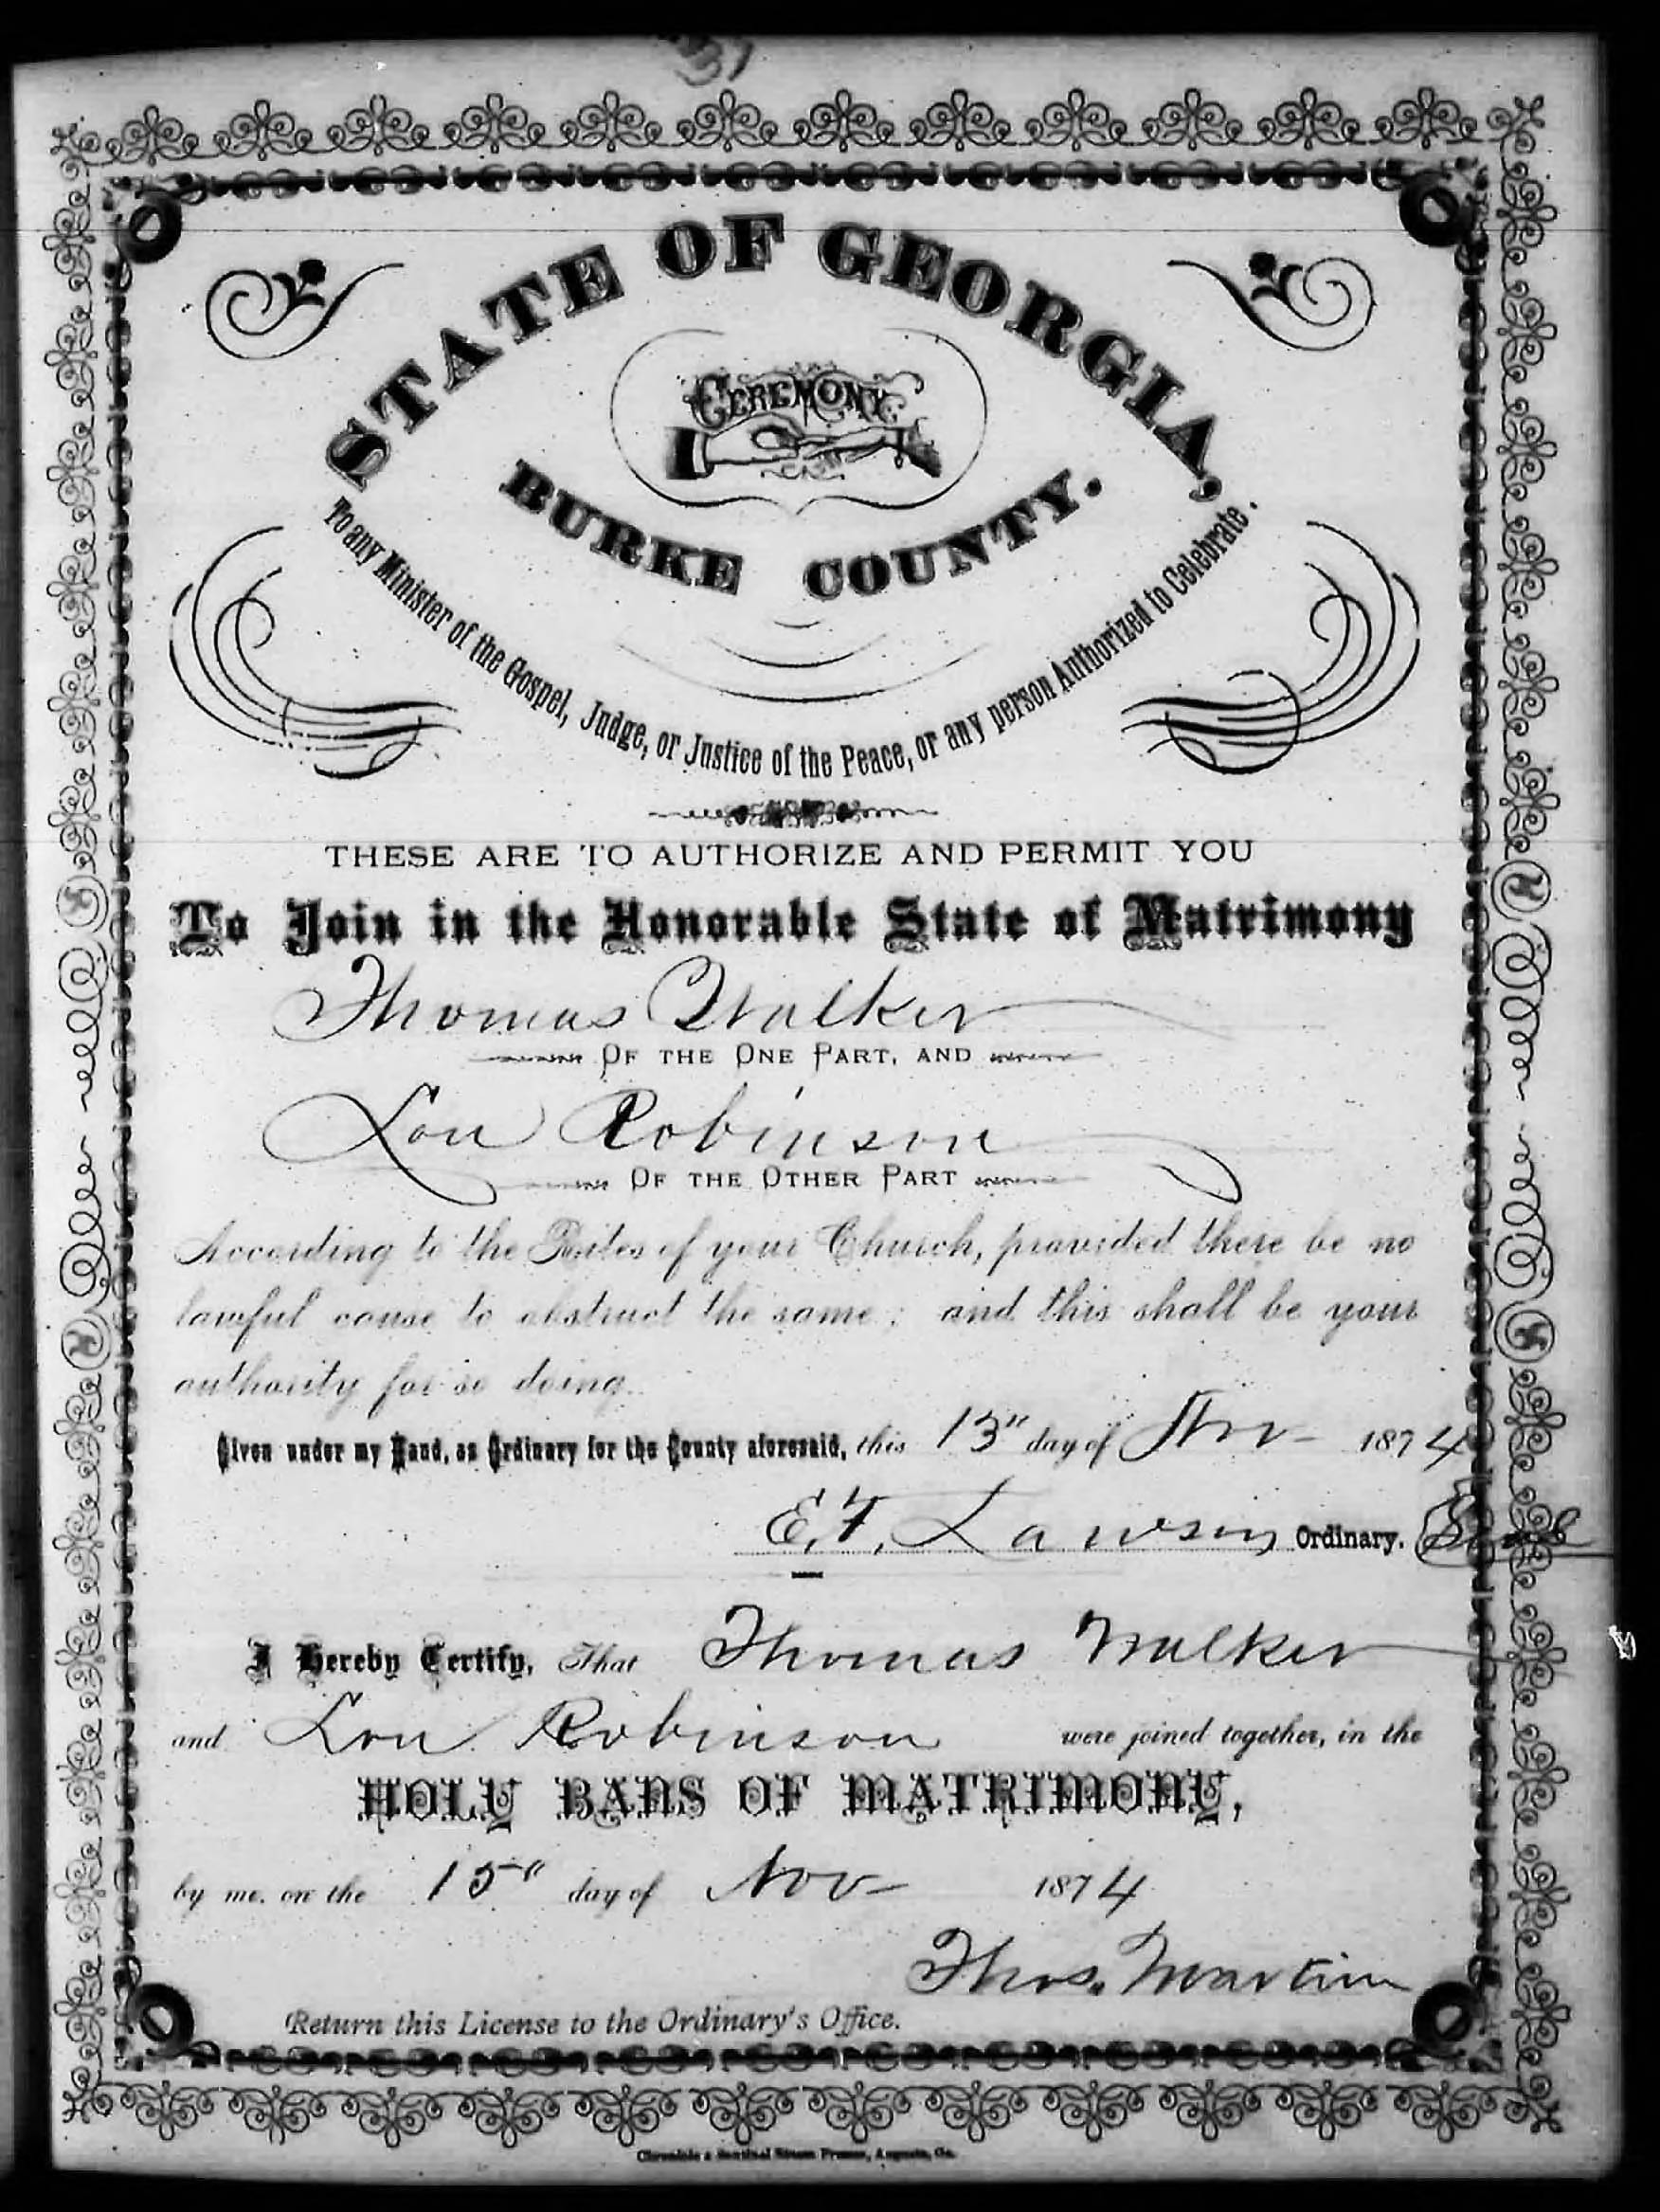 STATE OF GEORGIA,
CEREMONY.
BURKE COUNTY.
To any Minister of the Gospel, Judge, or Justice of the Peace, or any person Authorized to Celebrate.
THESE ARE TO AUTHORIZE AND PERMIT YOU
To Join in the Honorable State of Matrimony
Thomas Walker
OF THE ONE PART, AND
Lou Robinson
OF THE OTHER PART
According to the Rites of your Church, provided there be no
lawful cause to obstruct the same; and this shall be your
authority for so doing.
Given under my Hand, as Ordinary for the County aforesaid, this 13" day of Nov 1874
E. F. Lawson Ordinary.
I Hereby Certify, That Thomas Walker
and Lou Robinson were joined together, in the
HOLY BANS OF MATRIMONY,
by me, on the 15" day of Nov 1874
Thos. Martin
Return this License to the Ordinary's Office.
Chronicle & Sentinel Steam Presses, Augusta, Ga.